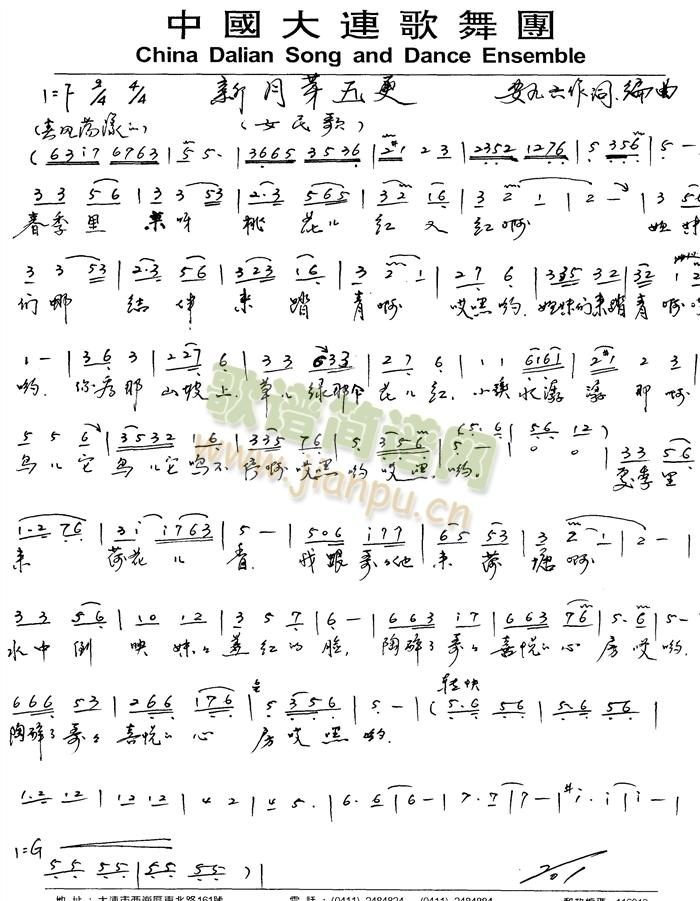 中國大連歌舞團
China Dalian Song and Dance Ensemble
1=F 2/4 4/4 新月芽五更 作词.编曲
(春风荡漾) (女民歌)
(6 3 i 7 6 7 6 3 | 5 5· | 3 6 6 5 3 5 3 6 | 2 1 2 3 | 2 3 5 2 1 2 7 6 | 5 3 5 6 | 5 -
3 3 5 6 | 3 3 5 3 | 2·3 5 6 5 | 3 2 1 6 | 3 2 1 | 2 - | 3 5 6
春季里 来呀 桃花儿 红又红啊 姐妹
3 3 5 3 | 2·3 5 6 | 3 2 3 1 6 | 3 2·1 | 2 7 6 | 3 3 5 3 2 | 3 2 1 2
们哪 结伴 来踏青啊 哎嘿哟.姐妹们来踏青啊
1 - | 3 6 3 | 2 2 7 6 | 3 3 6 3 3 | 2 7 6 | 1 1 6 1 6 1 | 2 1 2 3
哟. 你看那 山坡上 草儿绿那个 花儿红. 小溪水潺潺 那啊
5 5 6 | 3 5 3 2 1 6 | 3 3 5 7 6 | 5 3 5 6 | 5 - | 5 6 1 2 | 3 3 5 6
鸟儿它 鸟儿它鸣不停啊哎嘿哟哎嘿.哟. 夏季里
1·2 7 6 | 3 i i 7 6 3 | 5 - | 5 0 6 i 7 7 | 6 5 5 3 | 3 2 1 | 2 - |
来 荷花儿 香. 我跟哥哥他 来荷塘啊
3 3 5 6 | 1 0 1 2 | 3 5 7 | 6 - | 6 6 3 i 7 | 6 6 3 7 6 | 5·6 | 5 -
水中倒映妹妹羞红的脸, 陶醉了哥哥喜悦的心房哎哟.
6 6 6 5 3 | 2 6 6 1 7 6 | 5 3 5 6 | 5 - | (5·6 5 6 | 5·6 5 6 | 轻快
陶醉了哥哥喜悦的心 房哎嘿哟.
1·2 1 2 | 1 2 1 2 | 4 2 | 4 5· | 6·6 | 6 - | 7·7 | 7 - | #i·i | i - |
1=G
5 5 5 5 | 5 5 5 5 ) |
地 址：大連市西崗區東北路161號 電 話：(0411) 2484824 (0411) 2484884 郵政編碼：116013
歌谱简谱网
www.jianpu.cn